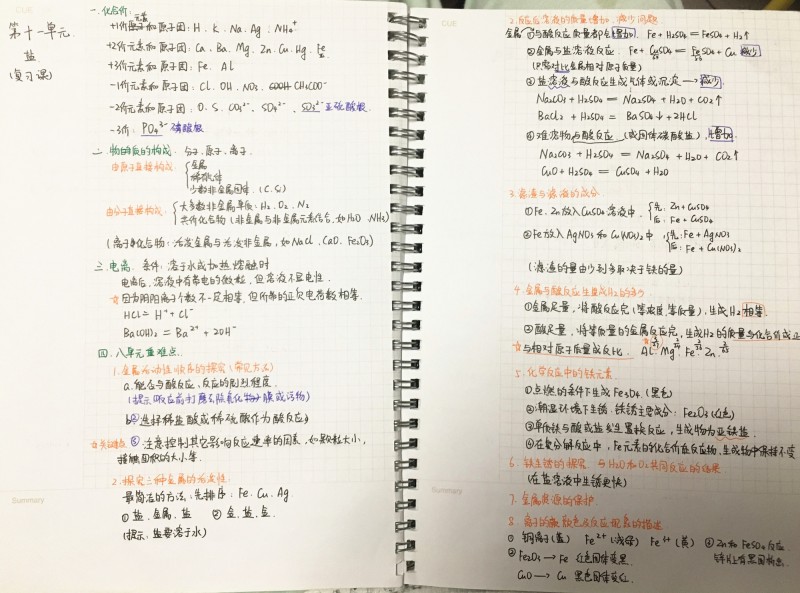 CUE
第十一单元.
盐
(复习课)
一.化合价:
+1价元素和原子团: H. K. Na. Ag. NH₄⁺
+2价元素和原子团: Ca. Ba. Mg. Zn. Cu. Hg. Fe
+3价元素和原子团: Fe. Al
-1价元素和原子团: Cl. OH. NO₃. CH₃COO⁻
-2价元素和原子团: O. S. CO₃²⁻. SO₄²⁻. SO₃²⁻ 亚硫酸根
-3价: PO₄³⁻ 磷酸根
二.物质的构成: 分子. 原子. 离子.
由原子直接构成:
金属
稀有气体
少数非金属固体. (C. S)
由分子直接构成:
大多数非金属单质: H₂. O₂. N₂
共价化合物 (非金属与非金属元素结合, 如H₂O. NH₃)
(离子化合物: 活发金属与活发非金属, 如NaCl. CaO. Fe₂O₃)
三.电离. 条件: 溶于水或加热熔融时
电离后, 溶液中有带电的微粒, 但溶液不显电性.
☆因为阴阳离子个数不一定相等, 但所带的正负电荷数相等.
HCl = H⁺ + Cl⁻
Ba(OH)₂ = Ba²⁺ + 2OH⁻
四. 八单元重难点.
1.金属活动性顺序的探究 (常见方法)
a.能否与酸反应、反应的剧烈程度.
(提示: 反应前打磨去除氧化物膜或污物)
b②选择稀盐酸或稀硫酸作为酸反应
☆关注难点 ③ 注意控制其它影响反应速率的因素, 如颗粒大小,
接触面积的大小等.
2.探究三种金属的活发性.
最简洁的方法: 先排序: Fe. Cu. Ag
①盐.金属.盐 ②金.盐.金.
(提示: 盐要溶于水)
Summary
CUE
2.反应后溶液的质量增加. 减少问题.
金属①与酸反应质量都会增加. Fe + H₂SO₄ = FeSO₄ + H₂↑
②金属与盐溶液反应. Fe + CuSO₄ = FeSO₄ + Cu 减少
(只需对比金属相对原子质量)
③盐溶液与酸反应生成气体或沉淀 → 减少.
Na₂CO₃ + H₂SO₄ = Na₂SO₄ + H₂O + CO₂↑
BaCl₂ + H₂SO₄ = BaSO₄↓ + 2HCl
④难溶物与酸反应 (或固体碳酸盐), 增加.
Na₂CO₃ + H₂SO₄ = Na₂SO₄ + H₂O + CO₂↑
CuO + H₂SO₄ = CuSO₄ + H₂O
3.滤渣与滤液的成分.
①Fe. Zn放入CuSO₄溶液中. 先: Zn + CuSO₄
后: Fe + CuSO₄
②Fe放入AgNO₃和Cu(NO₃)₂中 先: Fe + AgNO₃
后: Fe + Cu(NO₃)₂
(滤渣的量由少到多取决于铁的量)
4.金属与酸反应生成H₂的多少
①金属足量, 将酸反应完 (等浓度. 等质量). 生成H₂相等.
②酸足量, 将等质量的金属反应完, 生成H₂的质量与化合价成正
☆与相对原子质量成反比. Al Mg Fe Zn
5.化学反应中的铁元素
①点燃的条件下生成Fe₃O₄. (黑色)
②潮湿环境下生锈. 铁锈主要成分: Fe₂O₃ (红色)
③单质铁与酸或盐发生置换反应, 生成物为亚铁盐.
④在复分解反应中, Fe元素的化合价在反应物. 生成物中保持不变
6. 铁生锈的探究. 与H₂O和O₂共同反应的结果
(在盐溶液中生锈更快)
7.金属资源的保护.
8.离子的颜色及反应现象的描述
① 铜离子(蓝) Fe²⁺(浅绿) Fe³⁺(黄) ④Zn和FeSO₄反应.
② Fe₂O₃ → Fe 红色固体变黑 锌片上有黑固析出.
CuO → Cu 黑色固体变红.
Summary